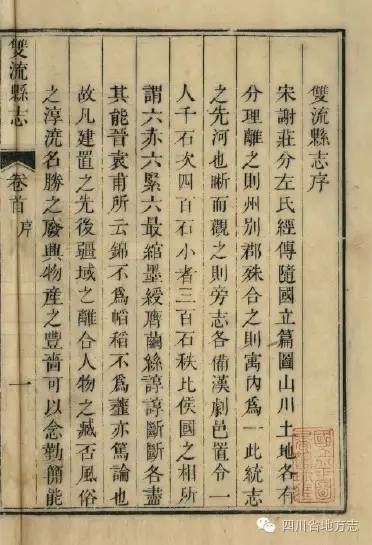 雙流縣志序
宋謝莊分左氏經傳隨國立篇圖山川土地各有
分理離之則州別郡殊合之則寓內為一此統志
之先河也晰而觀之則旁志各備漢劇邑置令一
人千石次四百石小者三百石秩比侯國之相所
謂六赤六緊六最綰墨綬膺繭絲諄諄斷斷各盡
其能晉袁甫所云錦不為幍稻不為虀亦篤論也
故凡建置之先後疆域之離合人物之臧否風俗
之淳澆名勝之廢興物產之豐嗇可以念勤籂能
雙流縣志
卷首
序
一
四川省地方志